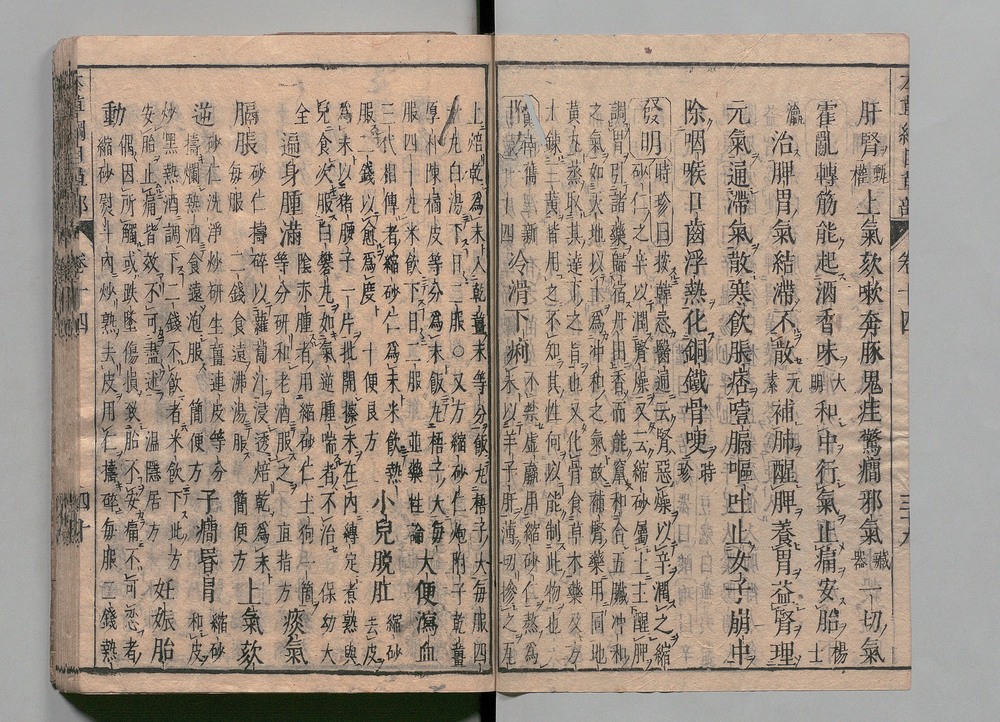 本草綱目草部 卷十四 三十九
肝腎甄權 上氣欬嗽奔豚鬼疰驚癇邪氣藏器 一切氣
霍亂轉筋能起酒香味大明 和中行氣止痛安胎楊士
瀛 治脾胃氣結滯不散元素 補肺醒脾養胃益腎理
元氣通滯氣散寒飲脹痞噎膈嘔吐止女子崩中
除咽喉口齒浮熱化銅鐵骨哽時珍
發明 時珍曰按韓𢘅醫通云腎惡燥以辛潤之縮
砂仁之辛以潤腎燥又云縮砂屬土主醒脾
調胃引諸藥歸宿丹田香而能竄和合五臟冲和
之氣如天地以土為冲和之氣故補腎藥用同地
黄丸蒸取其達下之旨也又化骨食草木藥及方
士鍊三黄皆用之不知其性何以能制此物也
附方 舊二新十四 冷滑下痢 不禁虛羸用縮砂仁熬為
末以羊子肝薄切摻之瓦
上焙乾為末入乾薑末等分飯丸梧子大每服四
十丸白湯下日二服○又方縮砂仁炮附子乾薑
厚朴陳橘皮等分為末飯丸梧子大每
服四十丸米飲下日二服 並藥性論 大便瀉血
三代相傳者縮砂仁為末米飲熱
服二錢以愈為度 十便良方 小兒脫肛 縮砂去皮
為末以猪腰子一片批開摻末在內縛定煮熟與
兒食次服白礬丸如氣逆腫喘者不治 保幼大
全 遍身腫滿 陰亦腫者用縮砂仁土狗一箇
等分研和老酒服之 直指方 痰氣
膈脹 砂仁擣碎以蘿蔔汁浸透焙乾為末
每服一二錢食遠沸湯服 簡便方 上氣欬
逆 砂仁洗淨炒研生薑連皮等分
擣爛熱酒食遠泡服 簡便方 子癇昏冒 縮砂和皮
炒黑熱酒調下二錢不飲者米飲下此方
安胎止痛皆效不可盡述 溫隱居方 妊娠胎
動 偶因所觸或跌墜傷損致胎不安痛不可忍者
縮砂熨斗內炒熟去皮用仁擣碎每服二錢熱
本草綱目草部 卷十四 四十